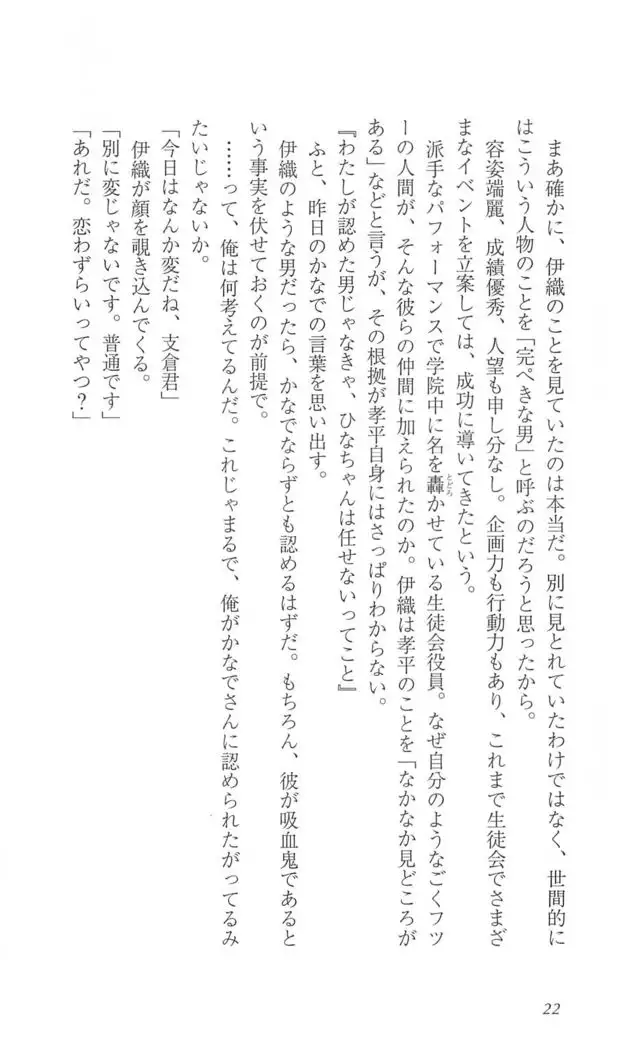 まあ確かに、伊織のことを見ていたのは本当だ。別に見とれていたわけではなく、世間的に
はこういう人物のことを「完ぺきな男」と呼ぶのだろうと思ったから。
容姿端麗、成績優秀、人望も申し分なし。企画力も行動力もあり、これまで生徒会でさまざ
まなイベントを立案しては、成功に導いてきたという。
派手なパフォーマンスで学院中に名を轟かせている生徒会役員。なぜ自分のようなごくフツ
ーの人間が、そんな彼らの仲間に加えられたのか。伊織は孝平のことを「なかなか見どころが
ある」などと言うが、その根拠が孝平自身にはさっぱりわからない。
『わたしが認めた男じゃなきゃ、ひなちゃんは任せないってこと』
ふと、昨日のかなでの言葉を思い出す。
伊織のような男だったら、かなでならずとも認めるはずだ。もちろん、彼が吸血鬼であると
いう事実を伏せておくのが前提で。
……って、俺は何考えてるんだ。これじゃまるで、俺がかなでさんに認められたがってるみ
たいじゃないか。
「今日はなんか変だね、支倉君」
伊織が顔を覗き込んでくる。
「別に変じゃないです。普通です」
「あれだ。恋わずらいってやつ？」
とどろ
22